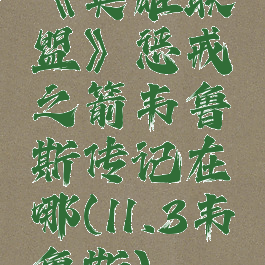 《英雄联
盟》惩戒
之箭韦鲁
斯传记在
哪(11.3韦
鲁斯)